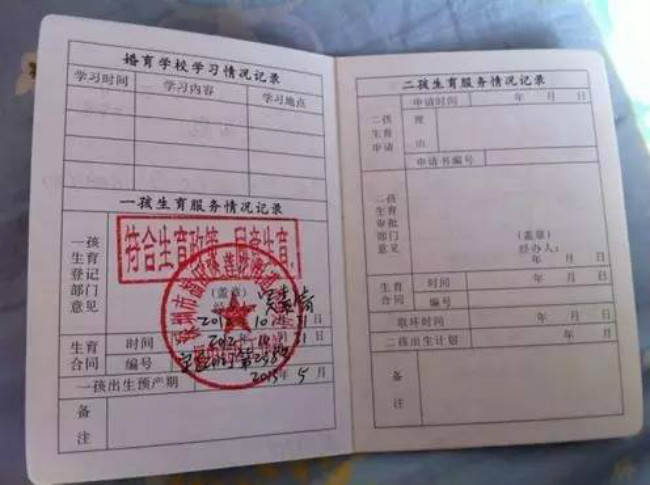 婚育学校学习情况记录
学习时间 学习内容 学习地点
一孩生育服务情况记录
一孩
生育
登记
部门
意见
符合生育政策 同意生育
(盖章)
10月31日
生育
合同
时间
编号
一孩出生预产期 2015年5月
备
注
二孩生育服务情况记录
二孩
生育
申请
申请时间 年 月 日
理
由
申请书编号
二孩
生育
审批
部门
意见
(盖章)
经办人:
年 月 日
生育
合同
时间 年 月 日
编号
取环时间 年 月 日
二孩出生计划 年 月
备
注